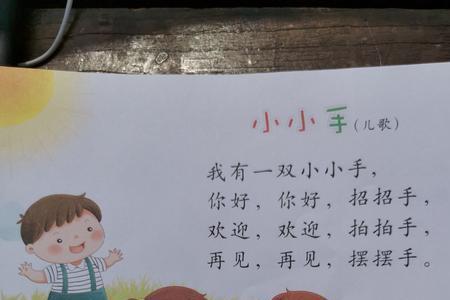 小小手(儿歌)
我有一双小小手，
你好，你好，招招手，
欢迎，欢迎，拍拍手，
再见，再见，摆摆手。